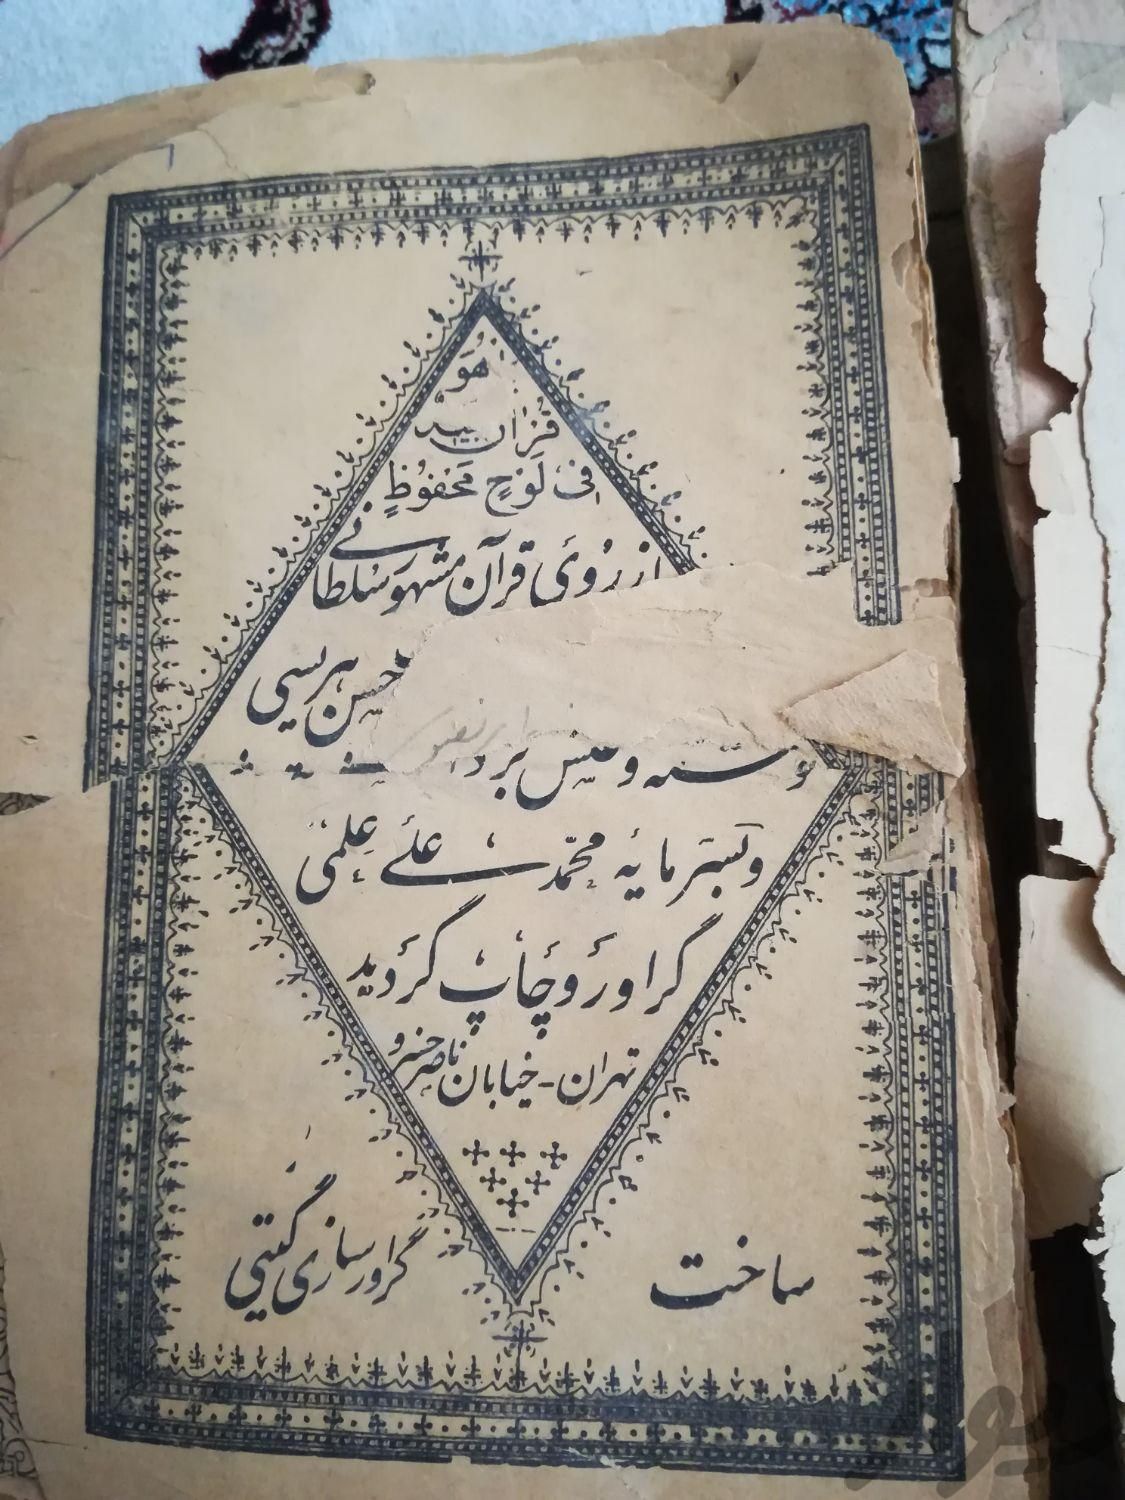 هُوَ
قُرْان
فی لَوْحٍ مَحْفُوظٍ
از رُویِ قرآن مشهور سُلطانی
حسن هریسی
نوشته و عکس بردا
وبسَرمایهٔ محمّد علی عِلمی
گراور و چاپ گردید
تهران - خیابان ناصر خسرو
ساخت
گراورسازی گیتی